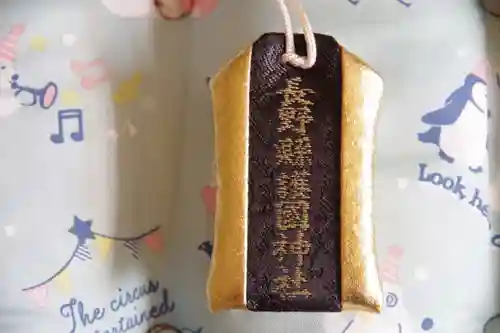 長野縣護國神社
Look here
The circus
entertained